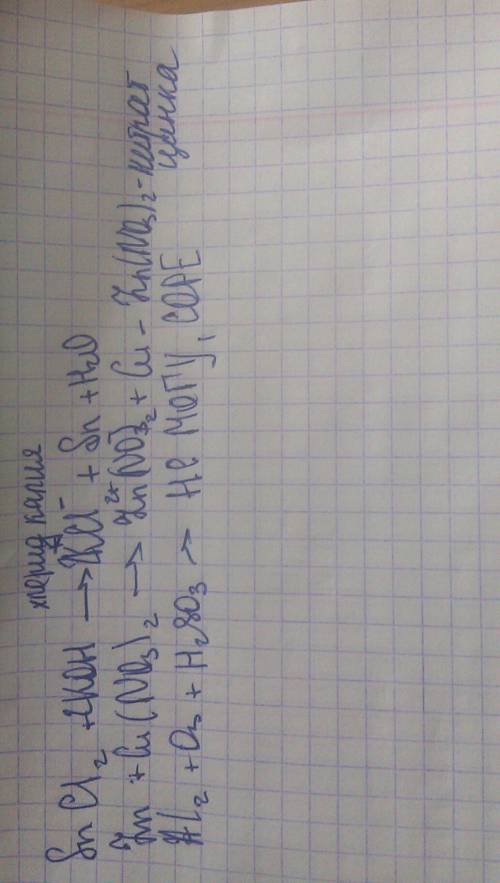 хлорид калия
SnCl₂ + 2KOH → 2K⁺Cl⁻ + Sn + H₂O
Zn + Cu(NO₃)₂ → Zn²⁺(NO₃⁻)₂ + Cu - Zn(NO₃)₂ - нитрат
цинка
Al₂ + O₃ + H₂SO₃ → Не МОГУ, СОРЕ